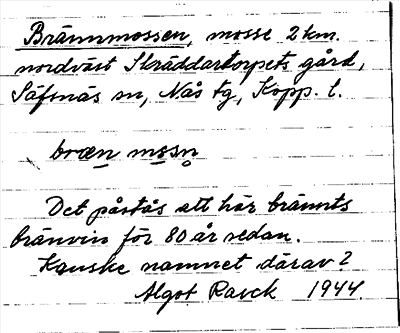 Brännmossen, mosse 2 km.
nordväst Skräddartorpets gård,
Säfsnäs sn, Nås tg, Kopp. l.
bræn mosn̥
Det påstås att här bränts
bränvin för 80 år sedan.
Kanske namnet därav?
Algot Ravck 1944.